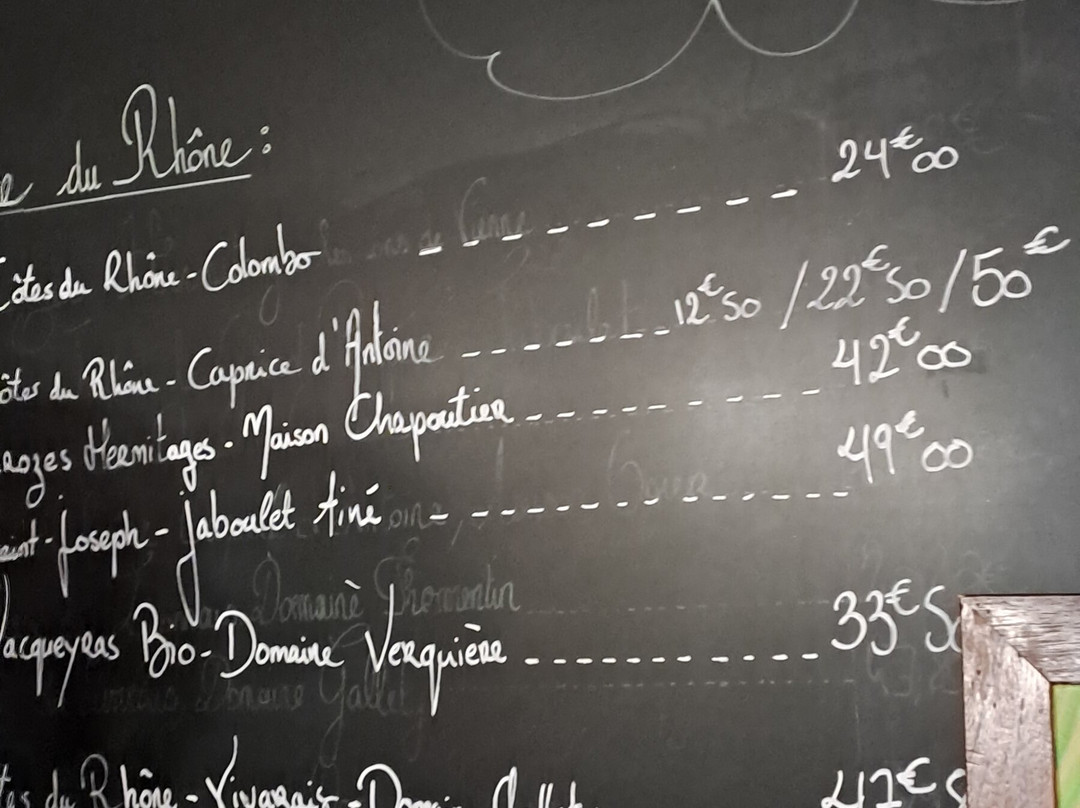 e du Rhône :
Côtes du Rhône - Colombo - - - - - - - - - 24€00
ôtes du Rhône - Caprice d'Antoine - - - - - - - - 12€50 / 22€50 / 50€
rozes Hermitages - Maison Chapoutier - - - - - - - - - - 42€00
aint-Joseph - Jaboulet Ainé - - - - - - - - - - - - 49€00
Domaine Thomentin
Vacqueyras Bio - Domaine Verquière - - - - - - - - - - - - 33€5
Domaine Gallet
es du Rhône - Vivarais -